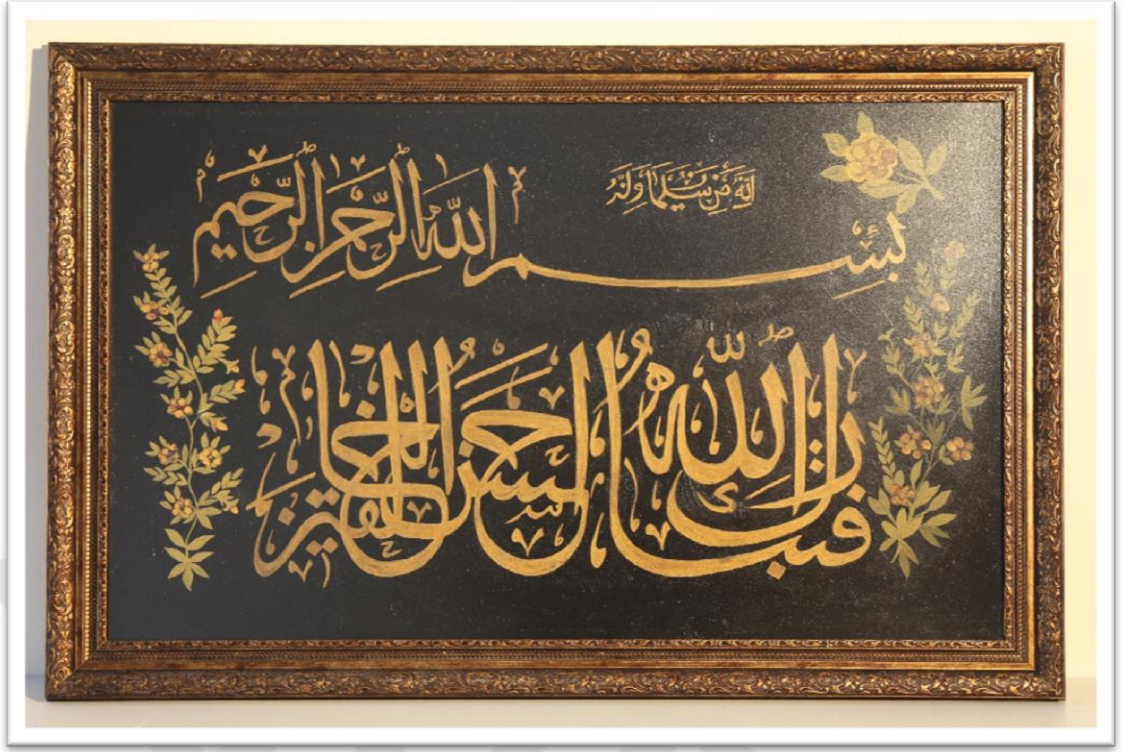 إنه من سليمان وإنه
بسم الله الرحمن الرحيم
فتبارك الله أحسن الخالقين